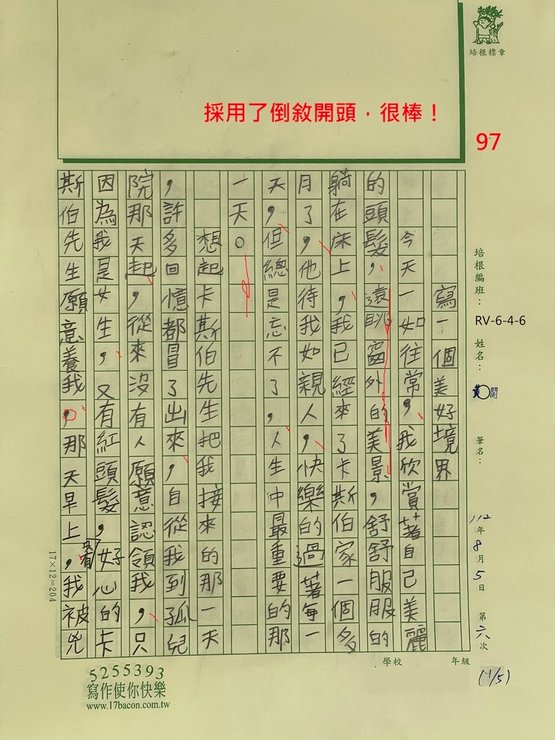 培根標章
採用了倒敘開頭，很棒！
97
培根編班：
RV-6-4-6
姓名：
筆名：
112年8月5日 第六次
(1/5)
學校 年級
寫一個美好境界
今天一如往常，我欣賞著自己美麗
的頭髮，遠眺窗外的美景，舒舒服服的
躺在床上，我已經來了卡斯伯家一個多
月了，他待我如親人，快樂的過著每一
天，但總是忘不了，人生中最重要的那
一天。
想起卡斯伯先生把我接來的那一天
，許多回憶都冒了出來，自從我到孤兒
院那天起，從來沒有人願意認領我，只
因為我是女生，又有紅頭髮，好心的卡
斯伯先生願意養我。那天早上，我被兇
17×12=204
5255393
寫作使你快樂
www.17bacon.com.tw